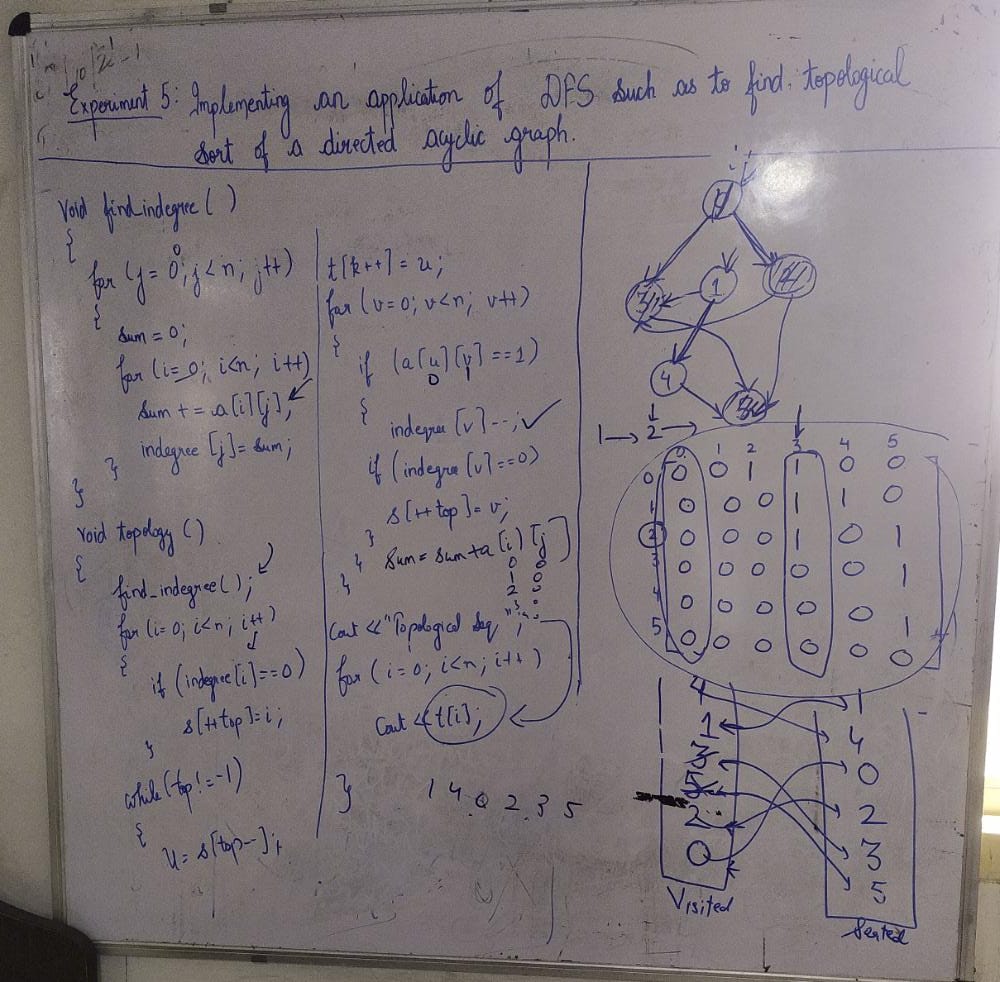 Experiment 5: Implementing an application of DFS such as to find topological
sort of a directed acyclic graph.
void find_indegree ( )
{
for (j = 0; j < n; j++)
{
sum = 0;
for (i = 0; i<n; i++)
sum + = a[i][j];
indegree [j] = sum;
}
}
void topology ( )
{
find_indegree ( );
for (i=0; i<n; i++)
{
if (indegree[i]==0)
s[++top]=i;
}
while (top! = -1)
{
u = s[top--];
t[k++] = u;
for (v=0; v<n; v++)
{
if (a[u][v] ==1)
{
indegree [v]--;
if (indegree [v] ==0)
s[++top]= v;
}
}
sum = sum+a [i] [j]
}
Cout << "Topological Seq";
for (i=0; i<n; i++)
Cout << t[i];
}
1 4 0 2 3 5
1
4
1 → 2 →
0 1 2 3 4 5
0 0 0 1 1 0 0
1 0 0 0 1 1 0
2 0 0 0 1 0 1
3 0 0 0 0 0 1
4 0 0 0 0 0 1
5 0 0 0 0 0 0
4
1
3
5
2
0
Visited
1
4
0
2
3
5
Sorted